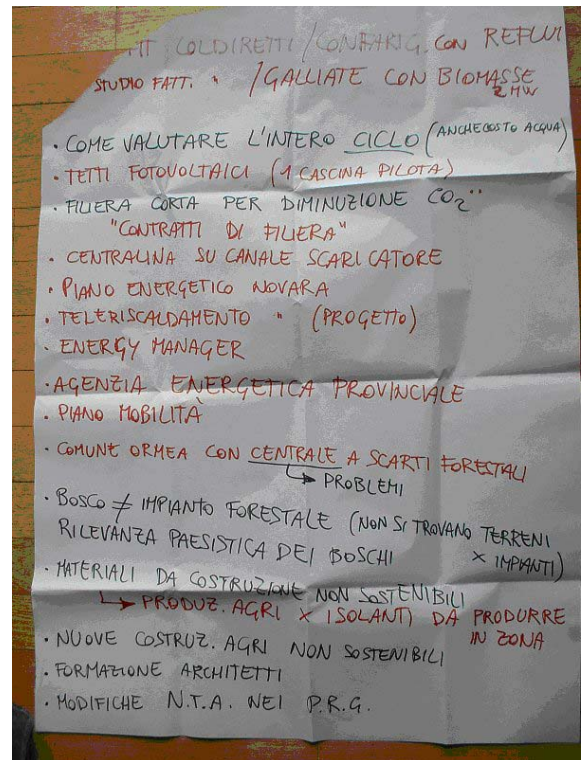 COLDIRETTI / CONFAGRIG. CON REFLUI
STUDIO FATT. " / GALLIATE CON BIOMASSE
2 MW
· COME VALUTARE L'INTERO CICLO (ANCHE COSTO ACQUA)
· TETTI FOTOVOLTAICI (1 CASCINA PILOTA)
· FILIERA CORTA PER DIMINUZIONE CO2"
"CONTRATTI DI FILIERA"
· CENTRALINA SU CANALE SCARICATORE
· PIANO ENERGETICO NOVARA
· TELERISCALDAMENTO " (PROGETTO)
· ENERGY MANAGER
· AGENZIA ENERGETICA PROVINCIALE
· PIANO MOBILITÀ
· COMUNE ORMEA CON CENTRALE A SCARTI FORESTALI
↳ PROBLEMI
· BOSCO ≠ IMPIANTO FORESTALE (NON SI TROVANO TERRENI
RILEVANZA PAESISTICA DEI BOSCHI × IMPIANTI)
· MATERIALI DA COSTRUZIONE NON SOSTENIBILI
↳ PRODUZ. AGRI × ISOLANTI DA PRODURRE
IN ZONA
· NUOVE COSTRUZ. AGRI NON SOSTENIBILI
· FORMAZIONE ARCHITETTI
· MODIFICHE N.T.A. NEI P.R.G.